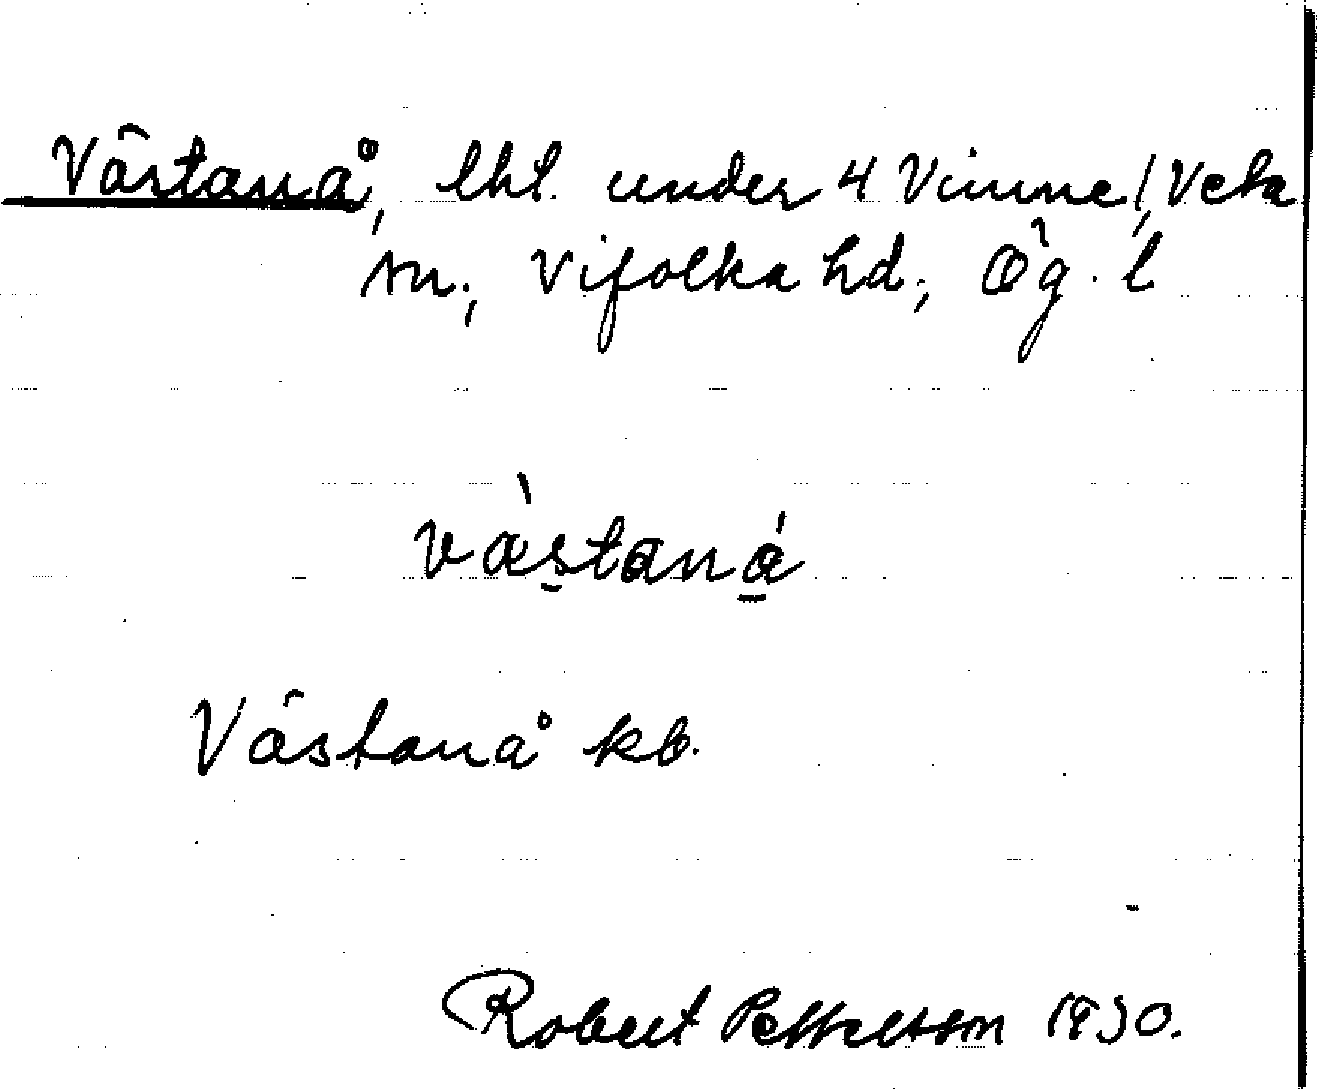 Västanå, lht. under 4 Vinne, Veta
sn., Vifolka hd., Ög. l
væ̀stanǻ
Västanå kb.
Robert Pettersson 1930.